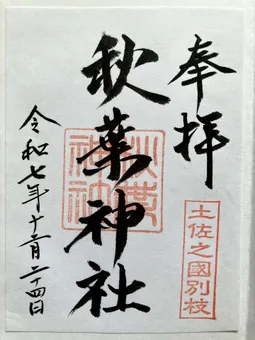 奉拝
土佐之國別枝
秋葉神社
秋葉神社
令和七年十二月二十四日